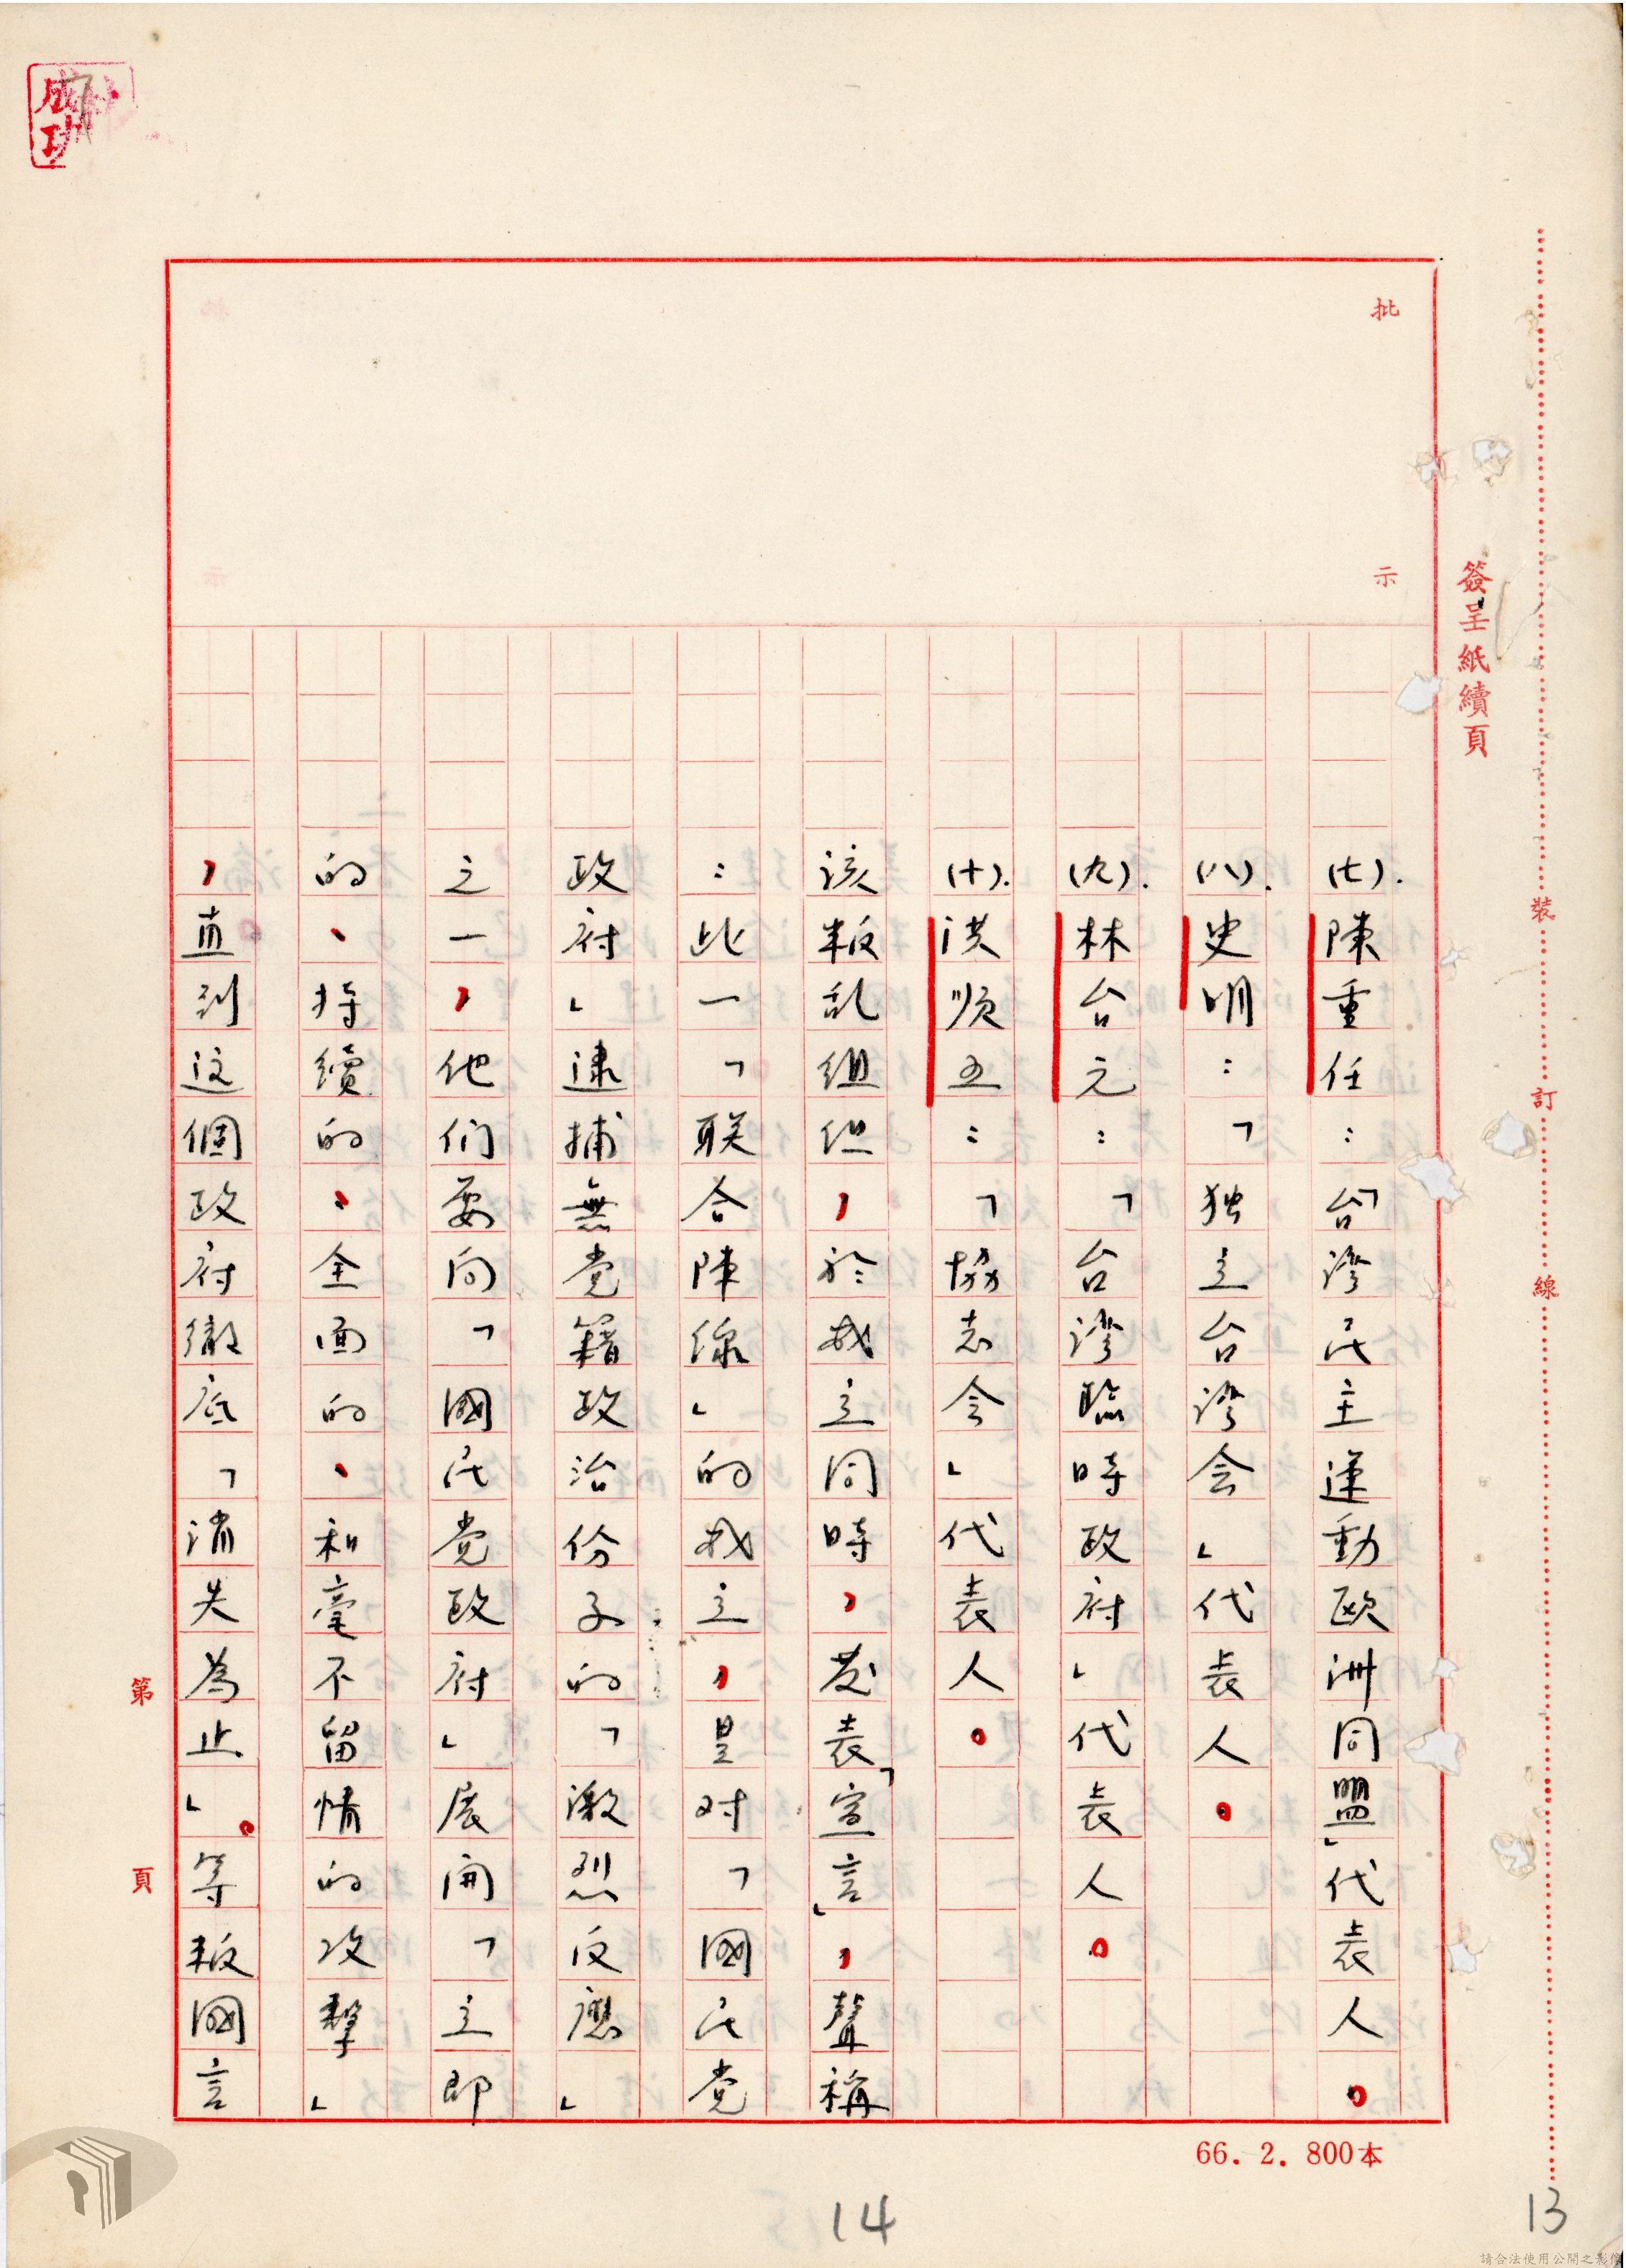 簽呈紙續頁
裝訂線
批示
(七).陳重任：「台灣民主運動欧洲同盟」代表人。
(八).史明：「独立台灣会」代表人。
(九).林台元：「台灣臨時政府」代表人。
(十).洪順五：「協志会」代表人。
該叛乱組织，於成立同時，发表「宣言」，聲稱
：此一「联合陣線」的成立，是对「國民党
政府」逮捕無党籍政治份子的「激烈反應」
之一，他们要向「國民党政府」展開「立即
的、持續的、全面的、和毫不留情的攻擊」
，直到這個政府徹底「消失為止」。等叛國言
第頁
66.2.800本
14
13
請合法使用公開之影像
成功